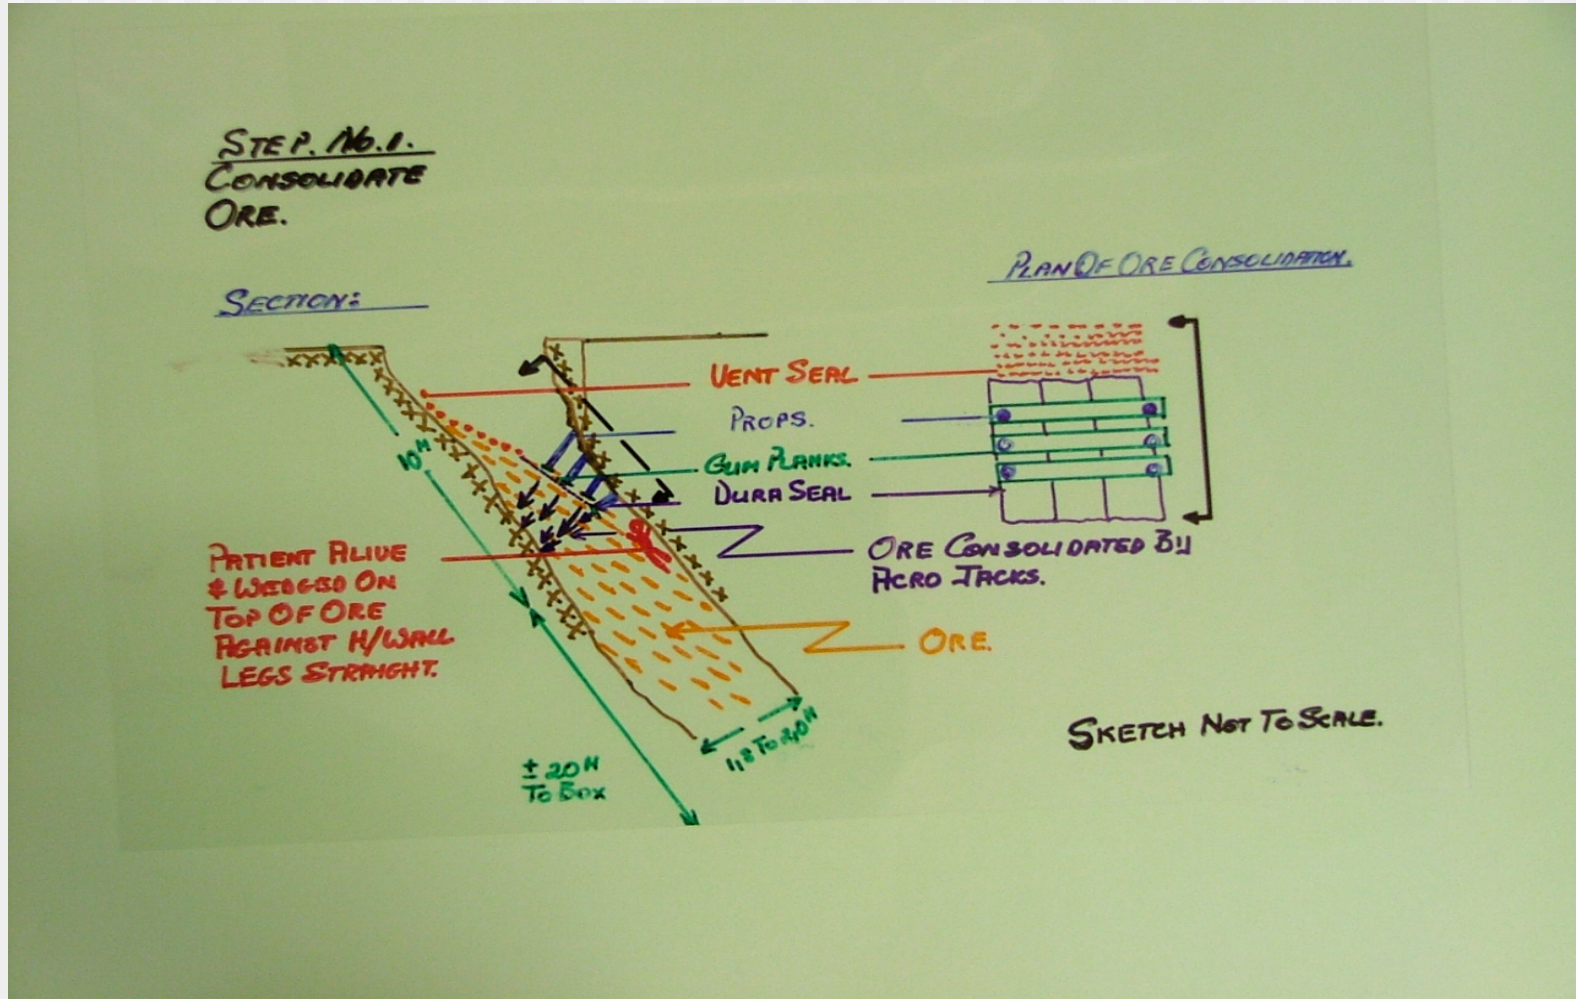 STEP. No.1.
CONSOLIDATE
ORE.
SECTION:
PLAN OF ORE CONSOLIDATION.
VENT SEAL
PROPS.
GUM PLANKS.
DURA SEAL
ORE CONSOLIDATED BY
ACRO JACKS.
10M
PATIENT ALIVE
& WEDGED ON
TOP OF ORE
AGAINST H/WALL
LEGS STRAIGHT.
ORE.
1,8 TO 2,0M
± 20M
TO BOX
SKETCH NOT TO SCALE.